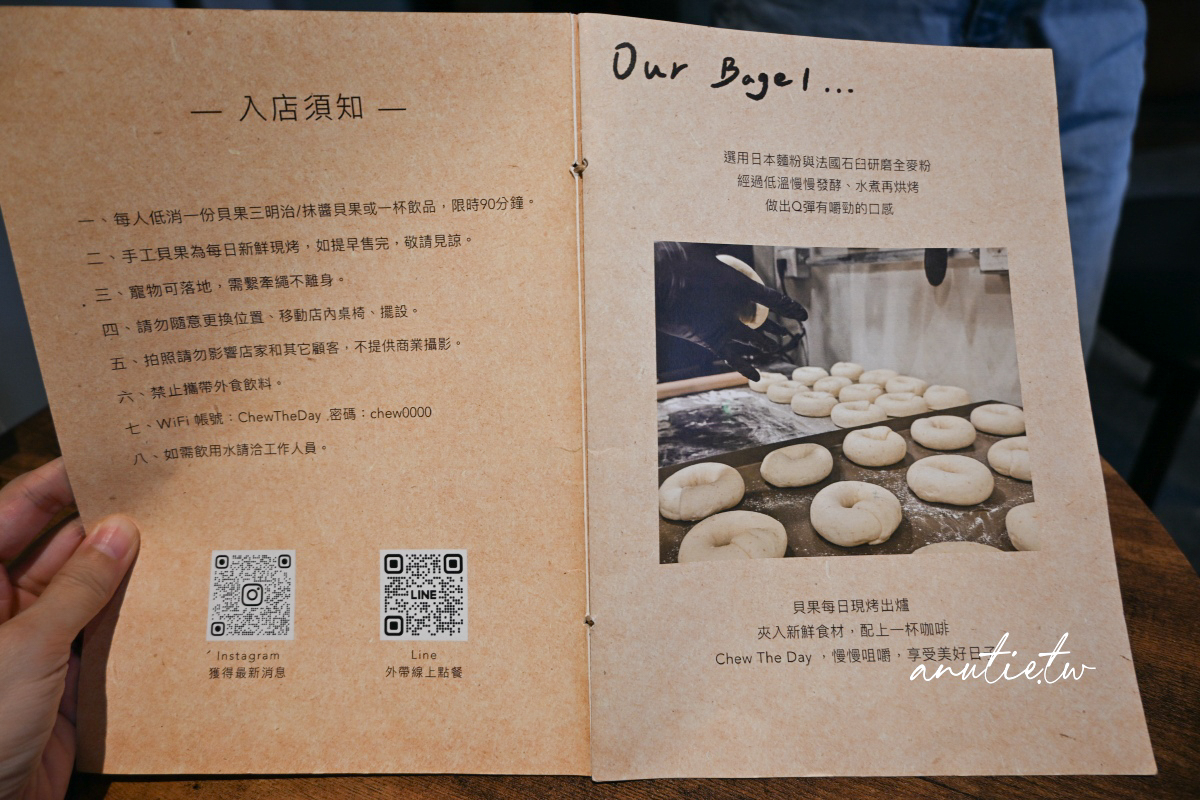 — 入店須知 —
一、每人低消一份貝果三明治/抹醬貝果或一杯飲品，限時90分鐘。
二、手工貝果為每日新鮮現烤，如提早售完，敬請見諒。
三、寵物可落地，需繫牽繩不離身。
四、請勿隨意更換位置、移動店內桌椅、擺設。
五、拍照請勿影響店家和其它顧客，不提供商業攝影。
六、禁止攜帶外食飲料。
七、WiFi 帳號：ChewTheDay .密碼：chew0000
八、如需飲用水請洽工作人員。
Instagram
獲得最新消息
LINE
Line
外帶線上點餐
Our Bagel...
選用日本麵粉與法國石臼研磨全麥粉
經過低溫慢慢發酵、水煮再烘烤
做出Q彈有嚼勁的口感
貝果每日現烤出爐
夾入新鮮食材，配上一杯咖啡
Chew The Day ，慢慢咀嚼，享受美好日子
anutie.tw